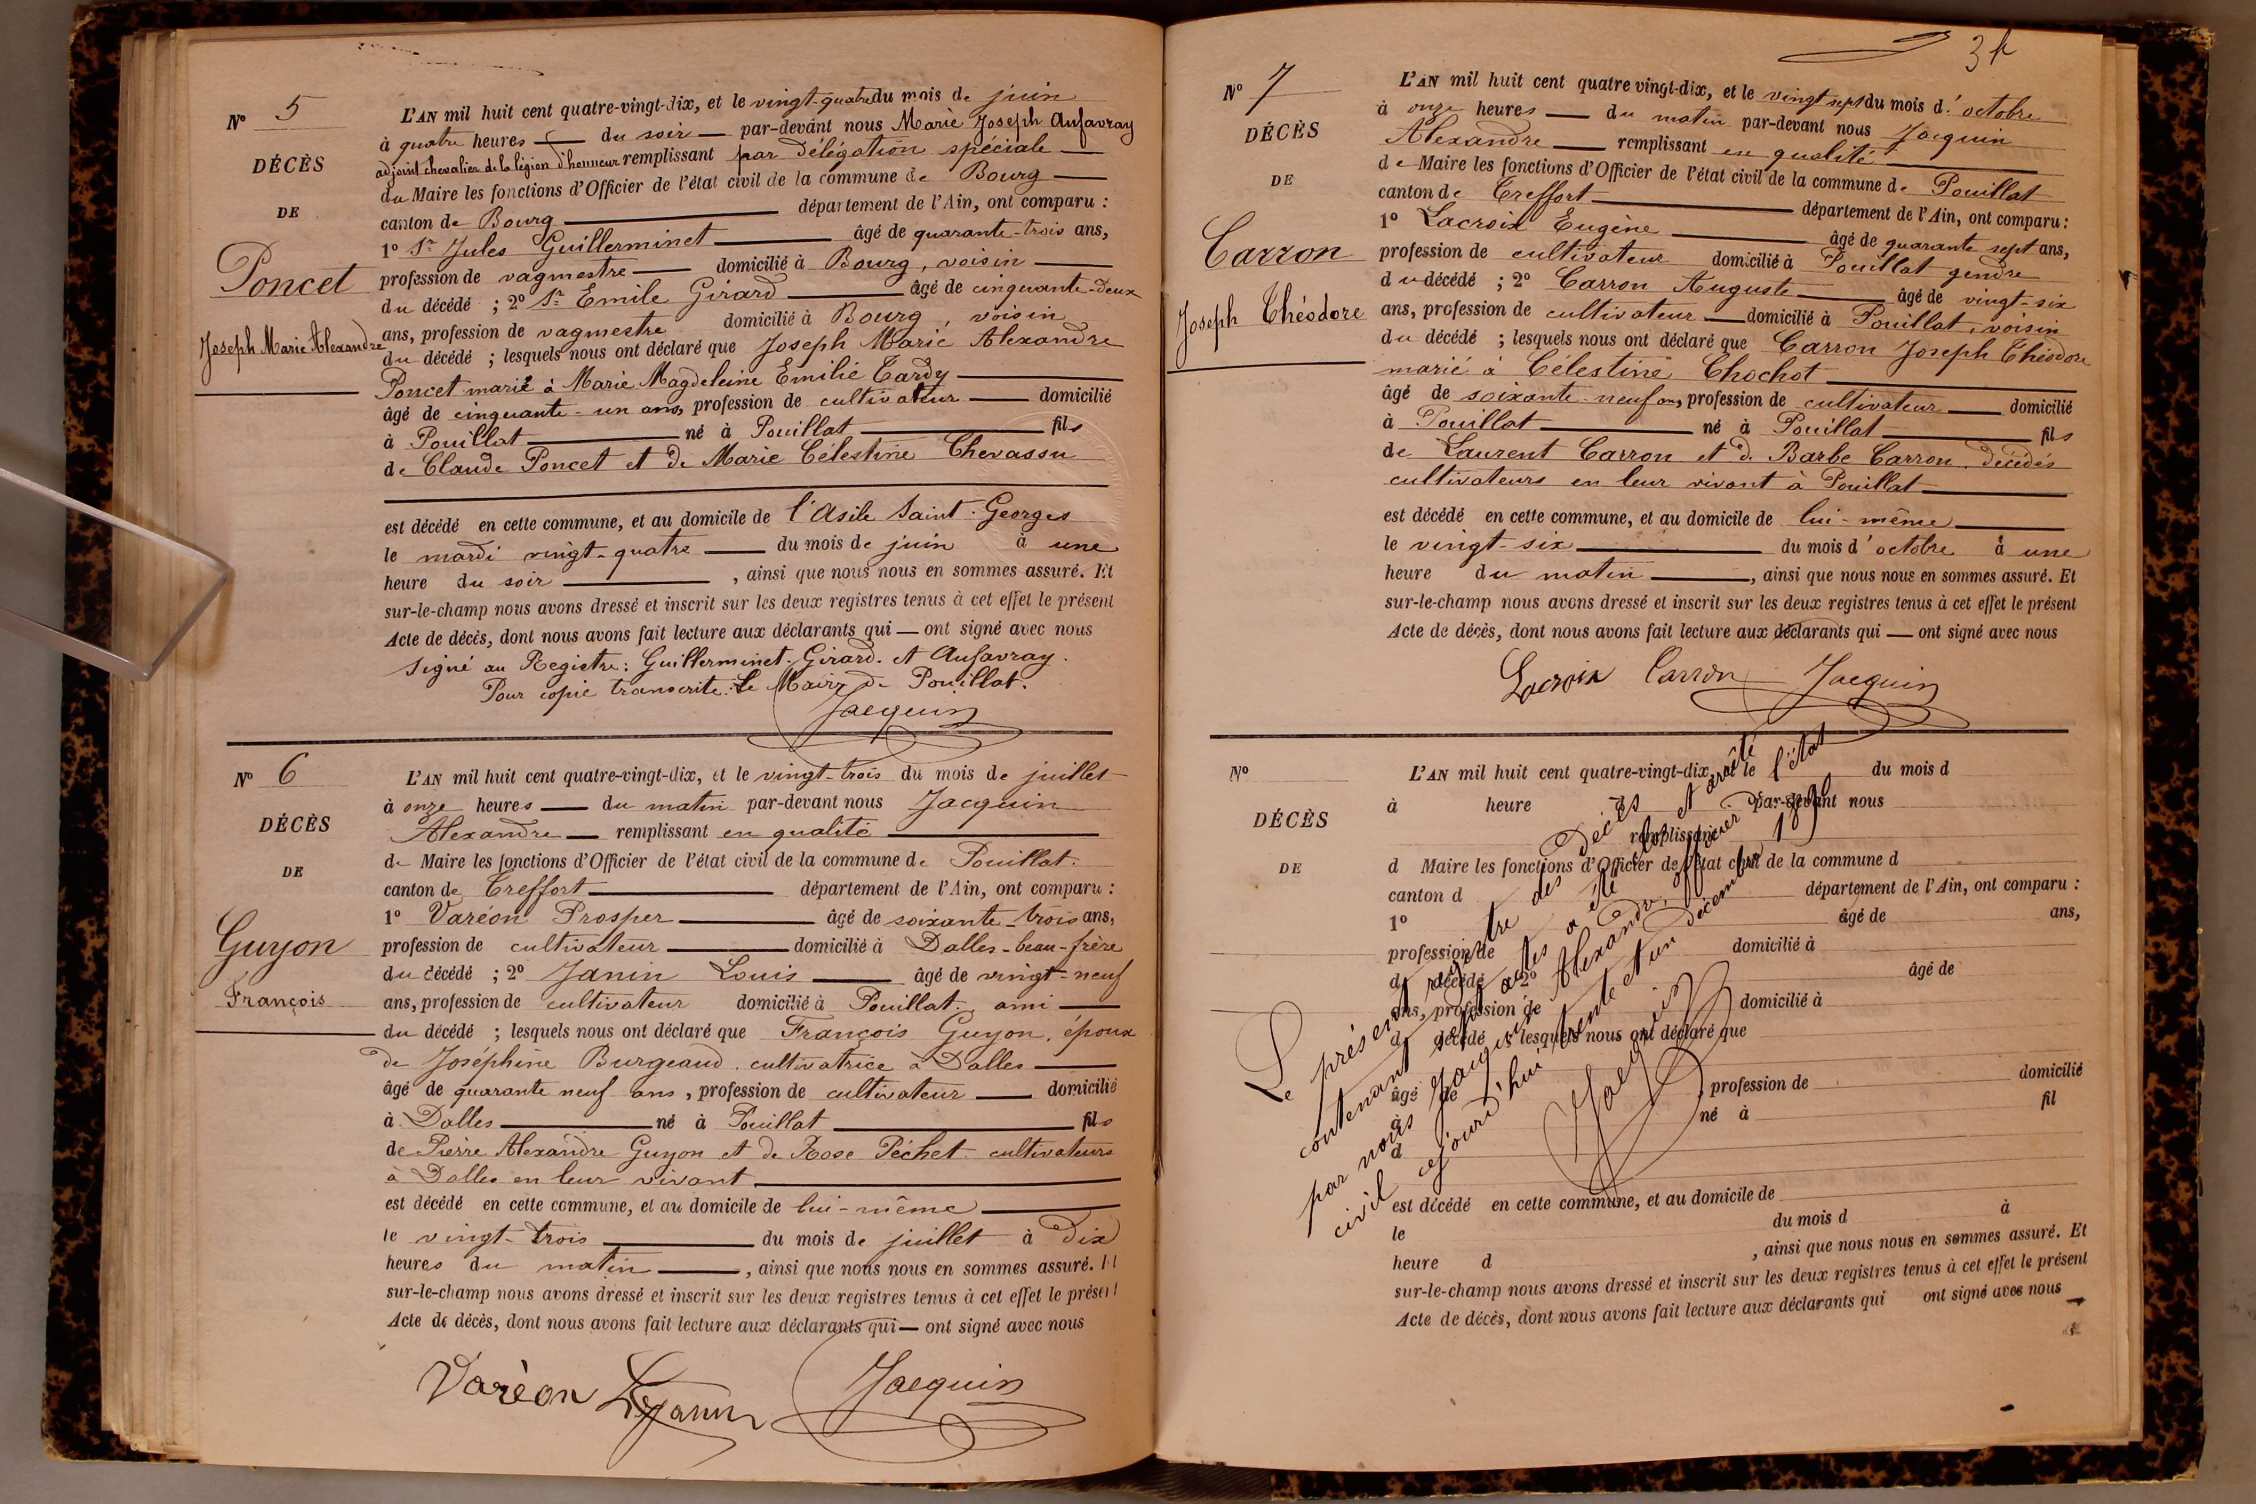 Nº 5
DÉCÈS
DE
Poncet
Joseph Marie Alexandre
L'AN mil huit cent quatre-vingt-dix, et le vingt-quatre du mois de juin
à quatre heures — du soir — par-devant nous Marie Joseph Aufavray
adjoint chevalier de la légion d'honneur remplissant par délégation spéciale —
du Maire les fonctions d'Officier de l'état civil de la commune de Bourg —
canton de Bourg — département de l'Ain, ont comparu :
1º Sr Jules Guillerminet — âgé de quarante-trois ans,
profession de vagmestre — domicilié à Bourg, voisin —
du décédé ; 2º Sr Emile Girard — âgé de cinquante-deux
ans, profession de vagmestre domicilié à Bourg, voisin
du décédé ; lesquels nous ont déclaré que Joseph Marie Alexandre
Poncet marié à Marie Magdeleine Emilie Tardy —
âgé de cinquante-un ans, profession de cultivateur — domicilié
à Pouillat — né à Pouillat — fils
de Claude Poncet et de Marie Célestine Chevassu
est décédé en cette commune, et au domicile de l'Asile Saint-Georges
le mardi vingt-quatre — du mois de juin à une
heure du soir — , ainsi que nous nous en sommes assuré. Et
sur-le-champ nous avons dressé et inscrit sur les deux registres tenus à cet effet le présent
Acte de décès, dont nous avons fait lecture aux déclarants qui — ont signé avec nous
signé au Registre : Guillerminet. Girard. et Aufavray.
Pour copie transcrite : le Maire de Pouillat.
Jacquin
Nº 6
DÉCÈS
DE
Guyon
François
L'AN mil huit cent quatre-vingt-dix, et le vingt-trois du mois de juillet
à onze heures — du matin par-devant nous Jacquin
Alexandre — remplissant en qualité —
de Maire les fonctions d'Officier de l'état civil de la commune de Pouillat.
canton de Treffort — département de l'Ain, ont comparu :
1º Varéon Prosper — âgé de soixante-trois ans,
profession de cultivateur — domicilié à Dalles-beau-frère
du décédé ; 2º Janin Louis — âgé de vingt-neuf
ans, profession de cultivateur domicilié à Pouillat, ami —
du décédé ; lesquels nous ont déclaré que François Guyon, époux
de Joséphine Burgeaud, cultivatrice à Dalles —
âgé de quarante neuf ans, profession de cultivateur — domicilié
à Dalles — né à Pouillat — fils
de Pierre Alexandre Guyon et de Rose Péchet cultivateurs
à Dalles en leur vivant —
est décédé en cette commune, et au domicile de lui-même —
le vingt-trois — du mois de juillet à dix
heures du matin — , ainsi que nous nous en sommes assuré. Et
sur-le-champ nous avons dressé et inscrit sur les deux registres tenus à cet effet le présent
Acte de décès, dont nous avons fait lecture aux déclarants qui — ont signé avec nous
Varéon Janin Jacquin
Nº 7
DÉCÈS
DE
Carron
Joseph Théodore
L'AN mil huit cent quatre vingt-dix, et le vingt sept du mois d'octobre
à onze heures — du matin par-devant nous Jacquin
Alexandre — remplissant en qualité —
de Maire les fonctions d'Officier de l'état civil de la commune de Pouillat
canton de Treffort — département de l'Ain, ont comparu :
1º Lacroix Eugène — âgé de quarante sept ans,
profession de cultivateur domicilié à Pouillat gendre
du décédé ; 2º Carron Auguste — âgé de vingt-six
ans, profession de cultivateur — domicilié à Pouillat, voisin
du décédé ; lesquels nous ont déclaré que Carron Joseph Théodore
marié à Célestine Chochot —
âgé de soixante-neuf ans, profession de cultivateur — domicilié
à Pouillat — né à Pouillat — fils
de Laurent Carron et de Barbe Carron, décédés
cultivateurs en leur vivant à Pouillat —
est décédé en cette commune, et au domicile de lui-même —
le vingt-six — du mois d'octobre à une
heure du matin — , ainsi que nous nous en sommes assuré. Et
sur-le-champ nous avons dressé et inscrit sur les deux registres tenus à cet effet le présent
Acte de décès, dont nous avons fait lecture aux déclarants qui — ont signé avec nous
Lacroix Carron Jacquin
Nº
DÉCÈS
DE
L'AN mil huit cent quatre-vingt-dix, et le du mois d
à heure par-devant nous
remplissant
d Maire les fonctions d'Officier de l'état civil de la commune d
canton d département de l'Ain, ont comparu :
1º âgé de ans,
profession de domicilié à
d décédé ; 2º âgé de
ans, profession de domicilié à
d décédé ; lesquels nous ont déclaré que
âgé de , profession de domicilié
à né à fil
d
est décédé en cette commune, et au domicile de
le du mois d à
heure d , ainsi que nous nous en sommes assuré. Et
sur-le-champ nous avons dressé et inscrit sur les deux registres tenus à cet effet le présent
Acte de décès, dont nous avons fait lecture aux déclarants qui ont signé avec nous
Le présent registre des Décès
contenant sept actes a été clos et arrêté
par nous Jacquin Alexandre, officier de l'état
civil cejourd'hui trente et un décembre 1890
Jacquin